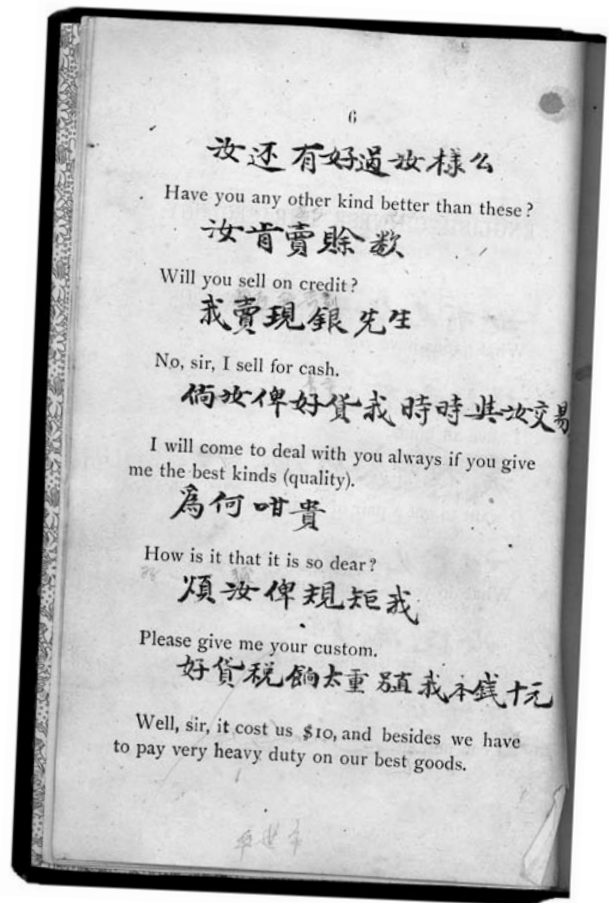 6
汝还有好過汝樣么
Have you any other kind better than these?
汝肯賣賒数
Will you sell on credit?
我賣現銀先生
No, sir, I sell for cash.
倘汝俾好貨我時時與汝交易
I will come to deal with you always if you give
me the best kinds (quality).
爲何咁貴
How is it that it is so dear?
煩汝俾規矩我
Please give me your custom.
好貨税餉太重 我本錢十元
Well, sir, it cost us $10, and besides we have
to pay very heavy duty on our best goods.